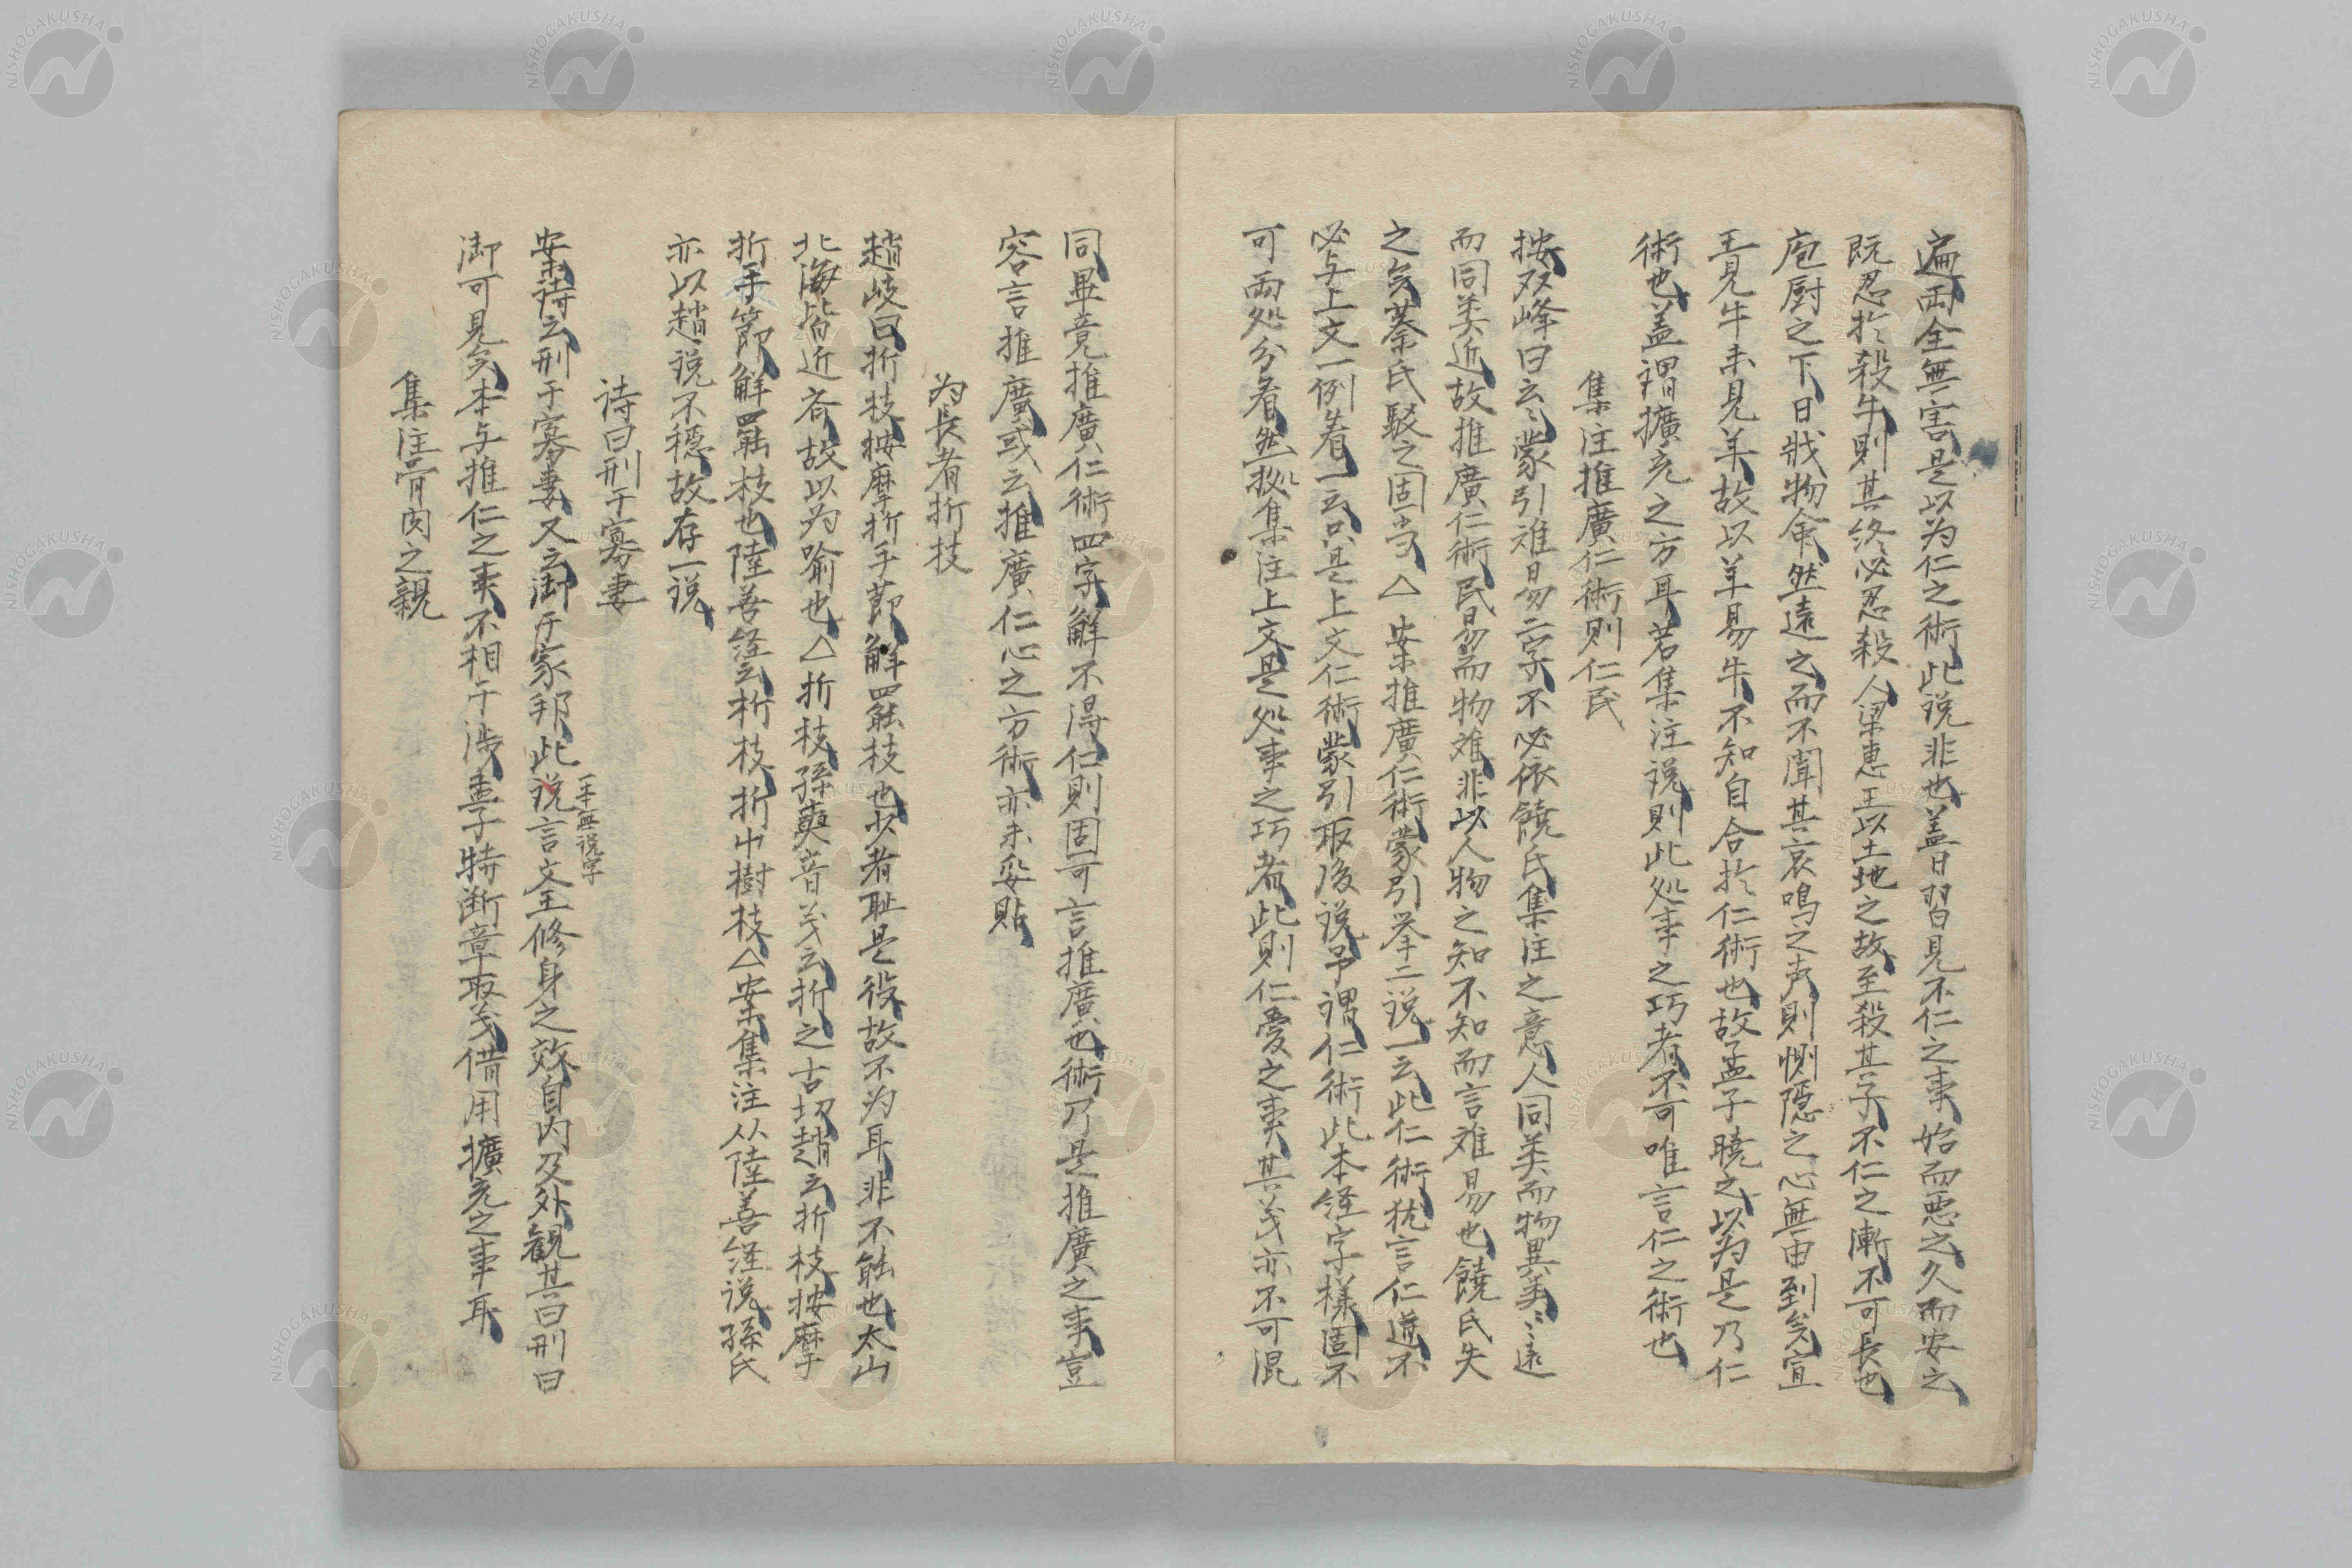 遍両全無害是以为仁之術此説非也盖日習見不仁之事始而悪之久而安之
既忍於殺牛則其終必忍殺人梁恵王以土地之故至殺其子不仁之漸不可長也
庖厨之下日戕物命然遠之而不聞其哀鳴之声則惻隠之心無由到矣宣
王見牛未見羊故以羊易牛不知自合於仁術也故孟子暁之以为是乃仁
術也盖謂擴充之方耳若集注説則此処事之巧者不可唯言仁之術也
集注推廣仁術則仁民
按双峰曰云〻蒙引难易二字不必依饒氏集注之意人同类而物異美〻遠
而同类近故推廣仁術民易而物难非以人物之知不知而言难易也饒氏失
之矣蔡氏駁之固当△案推廣仁術蒙引挙二説一云此仁術犹言仁道不
必与上文一例看一云只是上文仁術蒙引取後説予謂仁術此本経字様固不
可両処分看然拠集注上文是処事之巧者此則仁愛之事其义亦不可混
同畢竟推廣仁術四字解不得仁則固可言推廣也術乃是推廣之事豈
容言推廣或云推廣仁心之方術亦未妥貼
为長者折枝
趙岐曰折枝按摩折手節解罷枝也少者耻是役故不为耳非不能也太山
北海皆近斉故以为喩也△折枝孫奭音义云折之古切趙云折枝按摩
折手節解罷枝也陸善経云折枝折中樹枝△案集注从陸善経説孫氏
亦以趙説不穏故存一説
詩曰刑于寡妻
案詩云刑于寡妻又云御于家邦此説言文王修身之效自内及外観其曰刑曰
一本無説字
御可見矣本与推仁之事不相干渉孟子特断章取义借用擴充之事耳
集注骨肉之親
NISHOGAKUSHA